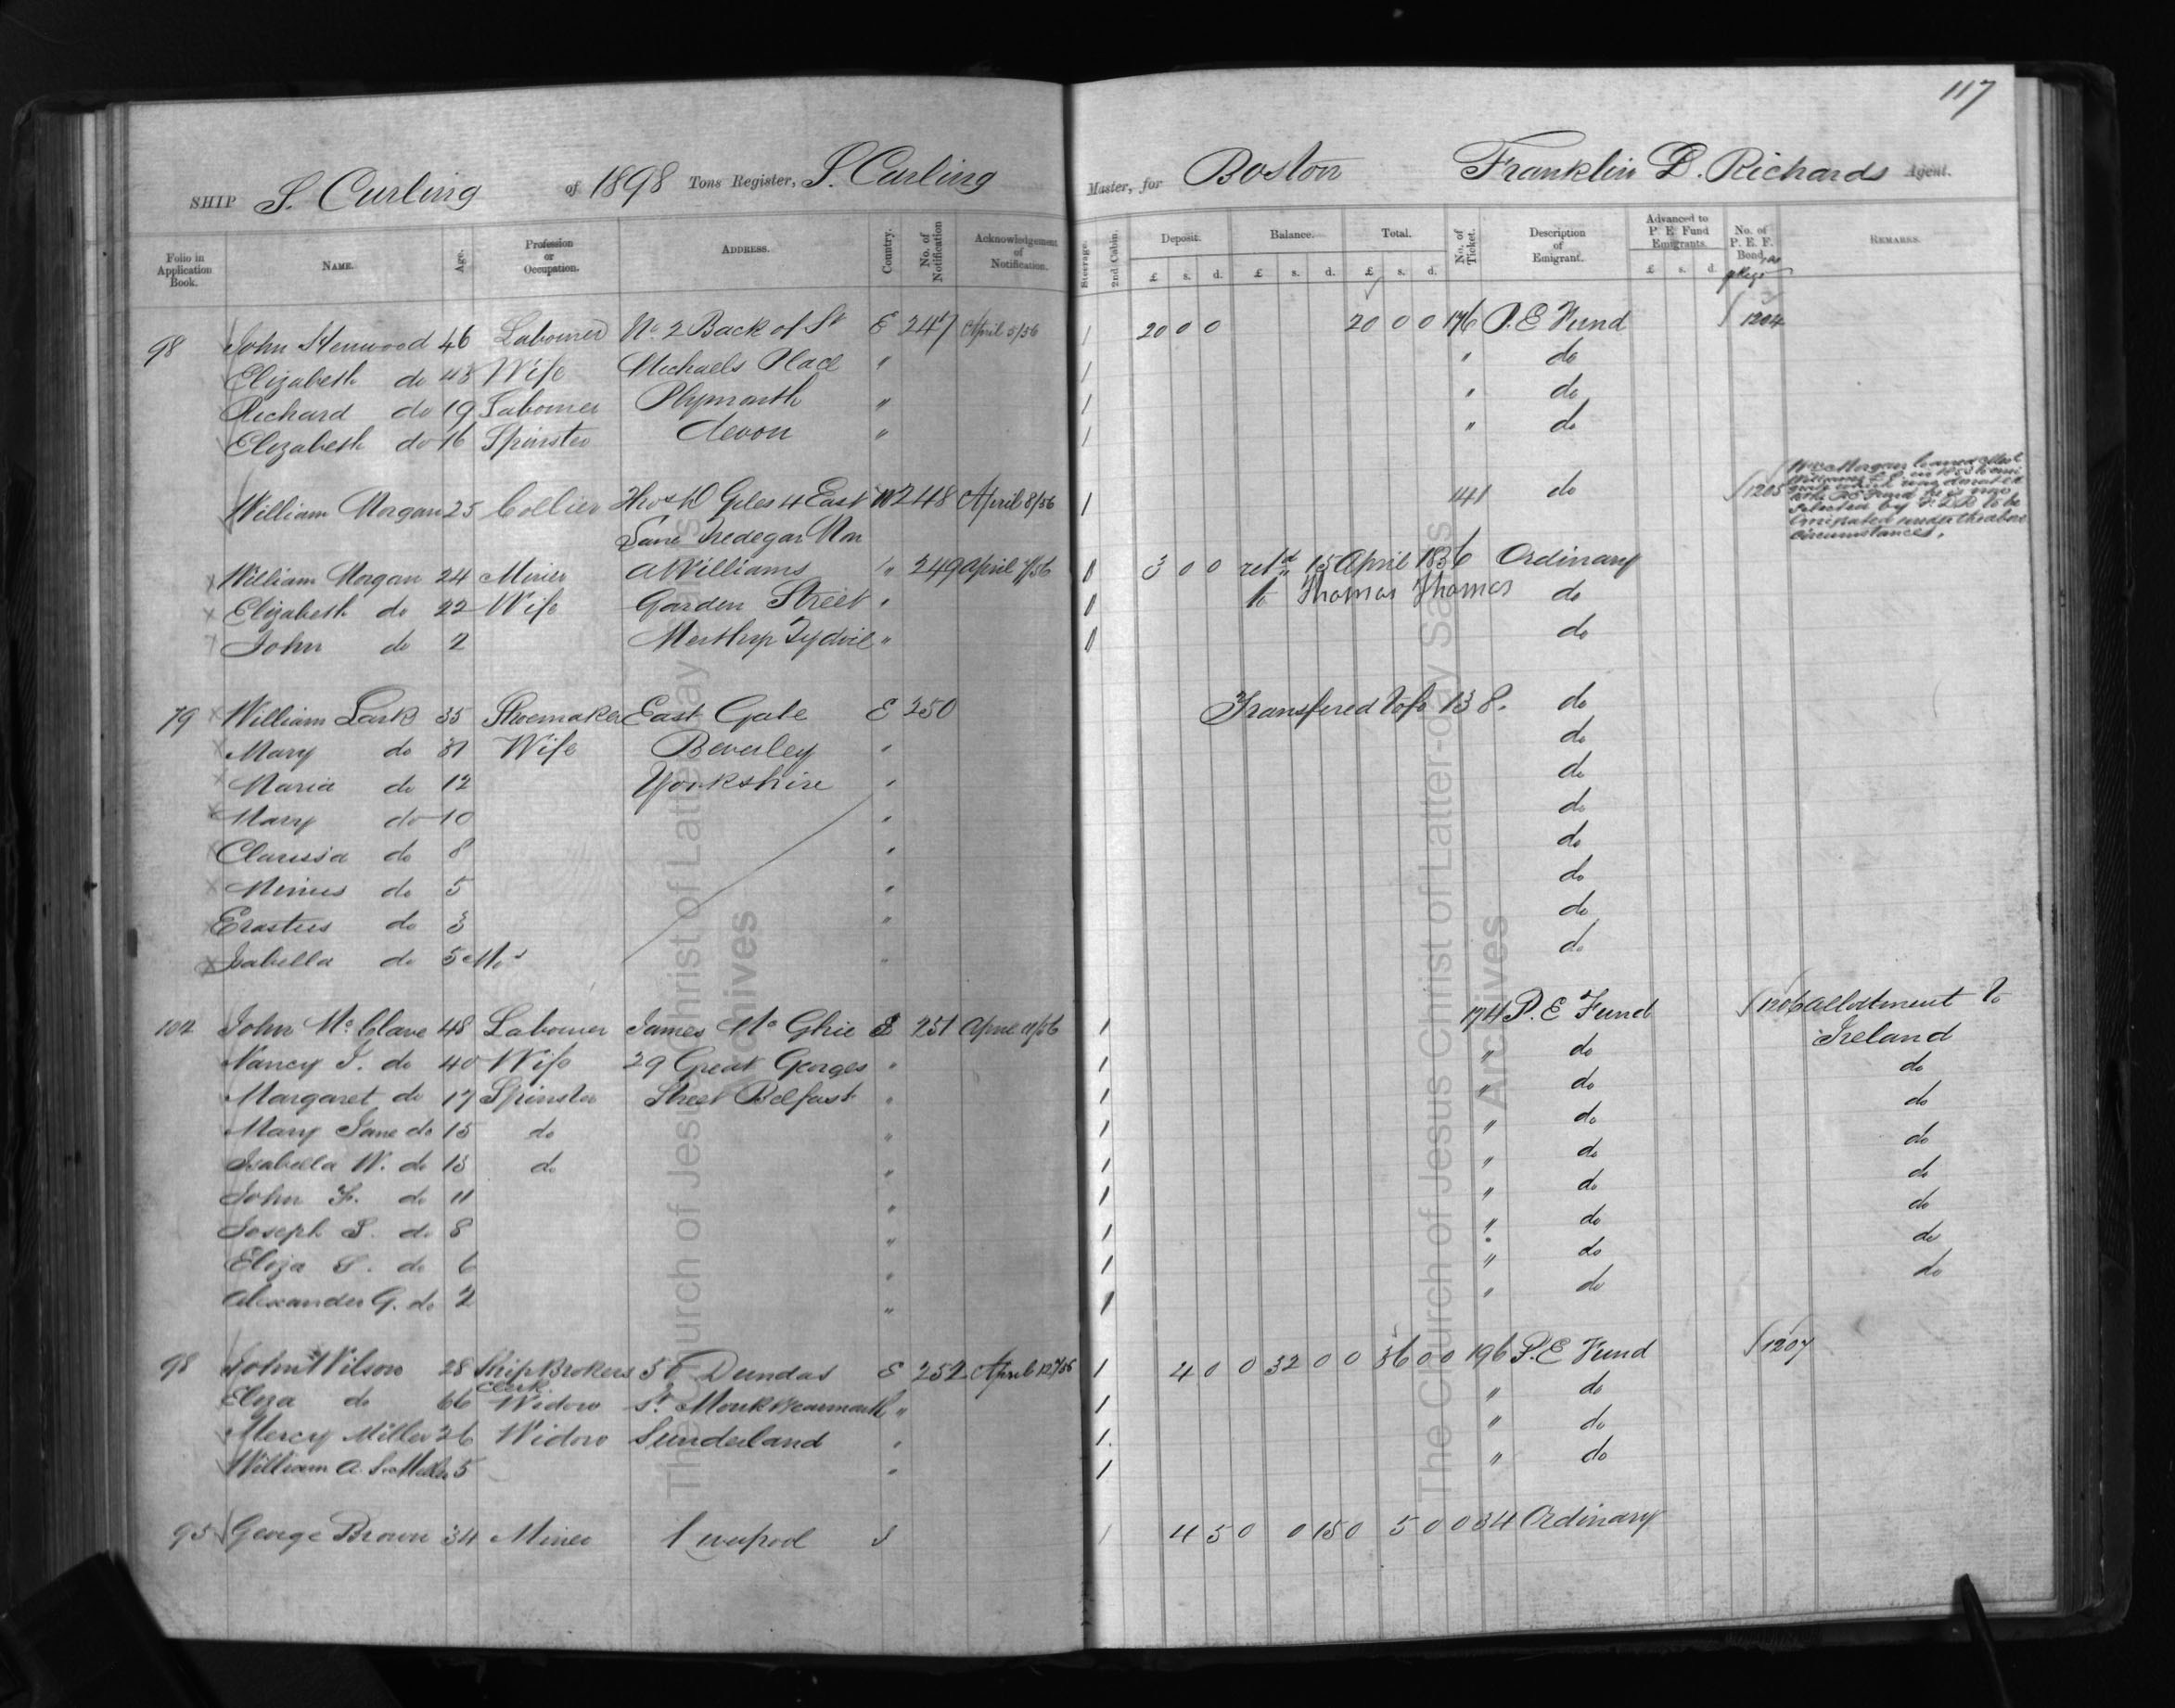 117
SHIP S. Curling of 1898 Tons Register, S. Curling Master, for Boston Franklin D. Richards Agent.
Folio in Application Book. NAME. Age. Profession or Occupation. ADDRESS. Country. No. of Notification Acknowledgement of Notification. Steerage. 2nd Cabin. Deposit. Balance. Total. No. of Ticket. Description of Emigrant. Advanced to P. E. Fund Emigrants. No. of P. E. F. Bond, REMARKS.
£ s. d. £ s. d. £ s. d. £ s. d.
98 John Stenwood 46 Labourer No 2 Back of St E 247 April 5/56 1 20 0 0 20 0 0 176 P. E Fund 1204
Elizabeth do 43 Wife Michaels Place " 1 " do
Richard do 19 Labourer Plymouth " 1 " do
Elizabeth do 16 Spinster devon " 1 " do
William Morgan 25 Collier Giles 4 East W 248 April 8/56 1 141 do 1205 Wm Morgan loaned
Lane Tredegar Mon
circumstances.
William Morgan 24 Miner A Williams " 249 April 9/56 3 0 0 retd 15 April 1856 Ordinary
Elizabeth do 22 Wife Garden Street " to Thomas Thomas do
John do 2 Merthyr Tydvil " do
79 William Lark 35 Shoemaker East Gate E 250 Transfered to fo 138. do
Mary do 31 Wife Beverley " do
Maria do 12 Yorkshire " do
Mary do 10 " do
Clarissa do 8 " do
do 5 " do
Erastus do 3 " do
Isabella do 5 Mos " do
102 John Mc Clave 48 Labourer James Mc Ghie I 251 April 11/56 1 174 P. E Fund 1206 allotment to
Ireland
Nancy J. do 40 Wife 29 Great Georges " 1 " do do
Margaret do 17 Spinster Street Belfast " 1 " do do
Mary Jane do 15 do " 1 " do do
Isabella W. do 13 do " 1 " do do
John F. do 11 " 1 " do do
Joseph S. do 8 " 1 " do do
Eliza S. do 6 " 1 " do do
Alexander G. do 2 " 1 " do
98 John Wilson 28 Ship Brokers Clerk 56 Dundas E 252 April 12/56 1 4 0 0 32 0 0 36 0 0 196 P. E Fund 1207
Eliza do 66 Widow St Monkwearmouth " 1 " do
Mercy Miller 26 Widow Sunderland " 1 " do
William A. Miller 5 " 1 " do
95 George Brown 34 Miner Liverpool 1 4 5 0 0 15 0 5 0 0 34 Ordinary
The Church of Jesus Christ of Latter-day Saints
Archives
The Church of Jesus Christ of Latter-day Saints
Archives